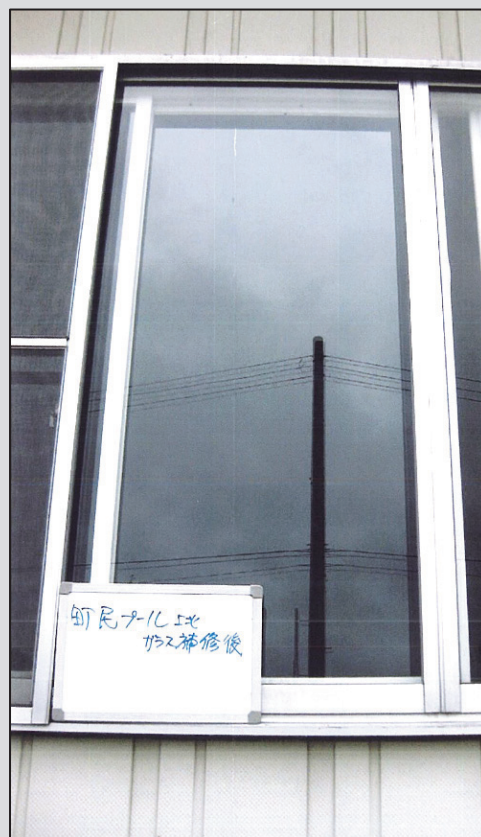 町民プール 上北
ガラス補修後